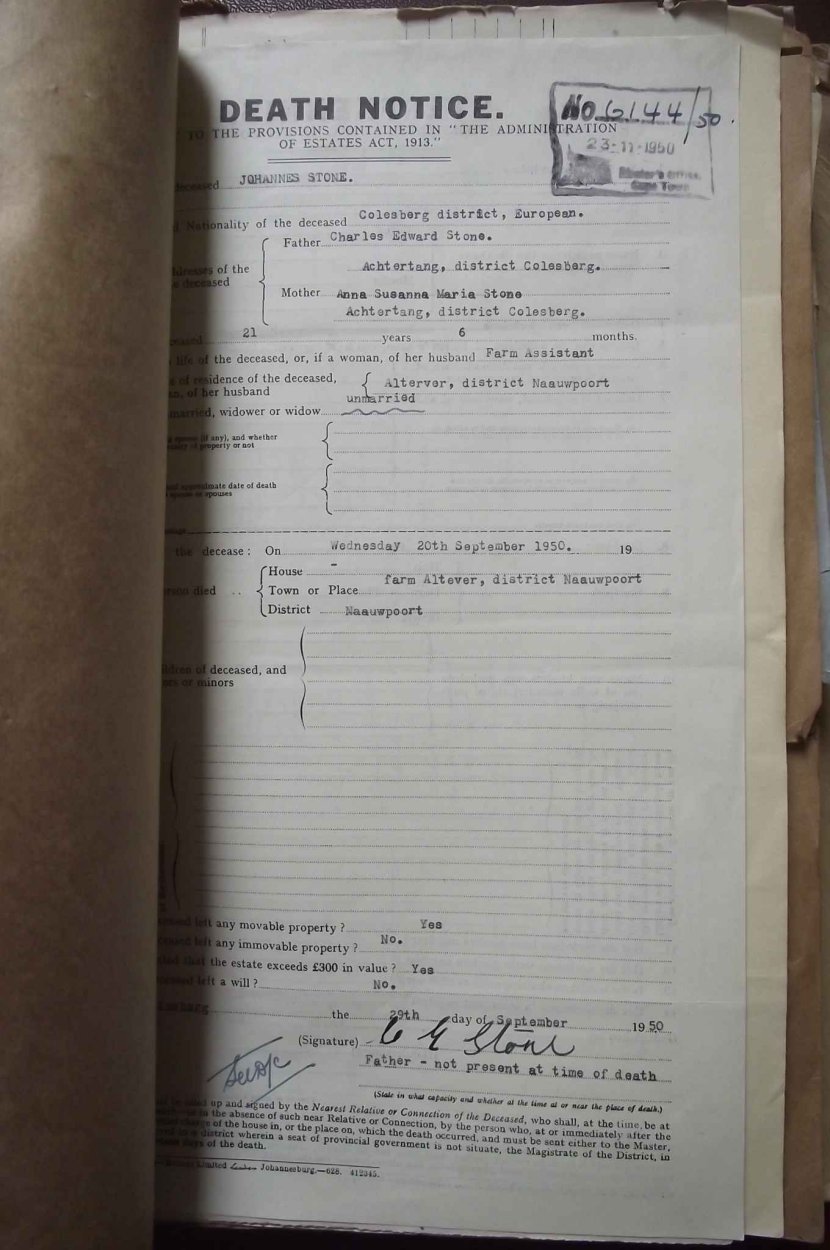 DEATH NOTICE.
No 6144/50.
TO THE PROVISIONS CONTAINED IN "THE ADMINISTRATION
OF ESTATES ACT, 1913."
23-11-1950
Master's Office
Cape Town
deceased JOHANNES STONE.
Nationality of the deceased Colesberg district, European.
Father Charles Edward Stone.
Achtertang, district Colesberg.
addresses of the
deceased
Mother Anna Susanna Maria Stone
Achtertang, district Colesberg.
21 years 6 months.
life of the deceased, or, if a woman, of her husband Farm Assistant
of residence of the deceased, Alterver, district Naauwpoort
of her husband
unmarried
married, widower or widow
spouse (if any), and whether
property or not
approximate date of death
spouse or spouses
the decease: On Wednesday 20th September 1950. 19
House -
person died .. Town or Place farm Altever, district Naauwpoort
District Naauwpoort
children of deceased, and
or minors
left any movable property? Yes
left any immovable property? No.
that the estate exceeds £300 in value? Yes
left a will? No.
the 29th day of September 1950
(Signature) C E Stone
Father - not present at time of death
(State in what capacity and whether at the time at or near the place of death.)
up and signed by the Nearest Relative or Connection of the Deceased, who shall, at the time, be at
in the absence of such near Relative or Connection, by the person who, at or immediately after the
of the house in, or the place on, which the death occurred, and must be sent either to the Master,
district wherein a seat of provincial government is not situate, the Magistrate of the District, in
days of the death.
Limited Johannesburg.—628. 412345.